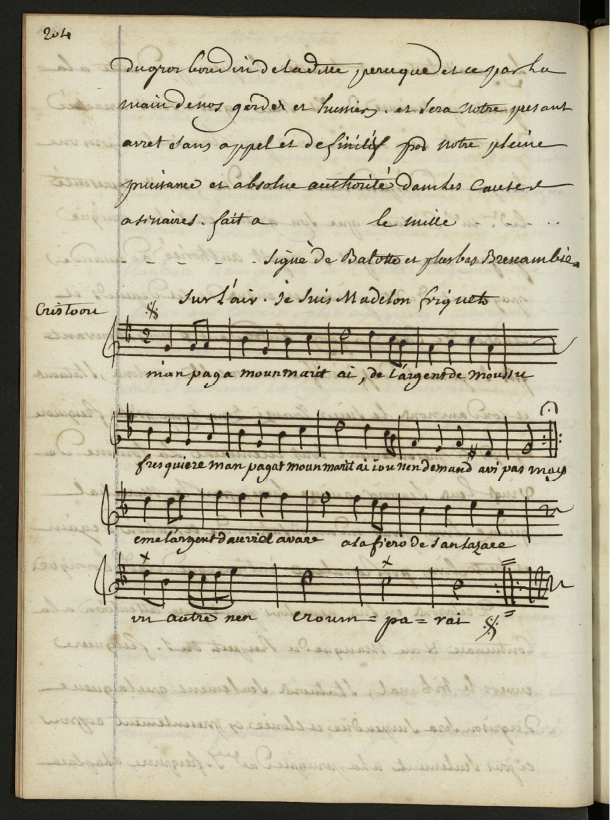 204
du gros boudin de la ditte perruque et ce par la
main de nos gardes et huissiers. et sera notre present
arret sans appel et definitif par notre pleine
puissance et absolue authorité dans les causes
asinaires. fait a le mille
signé de Balotte et plus bas Brescambie
Sur l'air. Je Suis Madelon friquet
Cristoou
2
m'an paga moun marit ai, de l'argent de moussu
fresquiere m'an pagat moun marit ai iou n'en demandavi pas mays
eme l'argent d'aureel avare a la fiero de san lazare
un autre nen croum = pa = rai